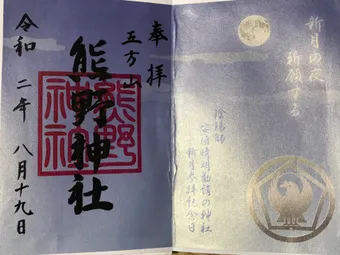 新月の夜
祈願する
陰陽師
安倍晴明勧請の神社
新月参拝記念日
奉拝
五方山
熊野神社
熊野
神社
令和二年八月十九日